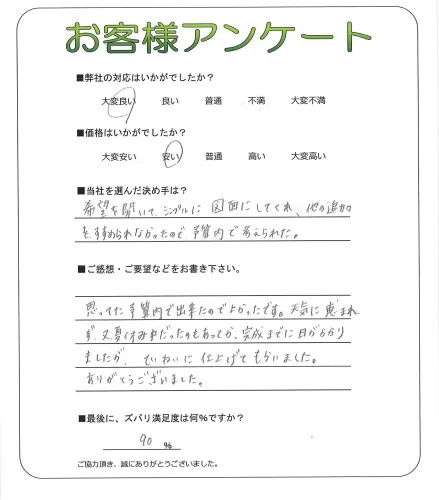 お客様アンケート
■弊社の対応はいかがでしたか？
大変良い 良い 普通 不満 大変不満
■価格はいかがでしたか？
大変安い 安い 普通 高い 大変高い
■当社を選んだ決め手は？
希望を聞いて、シンプルに図面にしてくれ、他の追加
をすすめられなかったので予算内で考えられた。
■ご感想・ご要望などをお書き下さい。
思ってた予算内で出来たのでよかったです。天気に恵まれ
ず、又夏休み中だったのもあってか、完成までに日がかかり
ましたが、ていねいに仕上げてもらいました。
ありがとうございました。
■最後に、ズバリ満足度は何%ですか？
90 %
ご協力頂き、誠にありがとうございました。